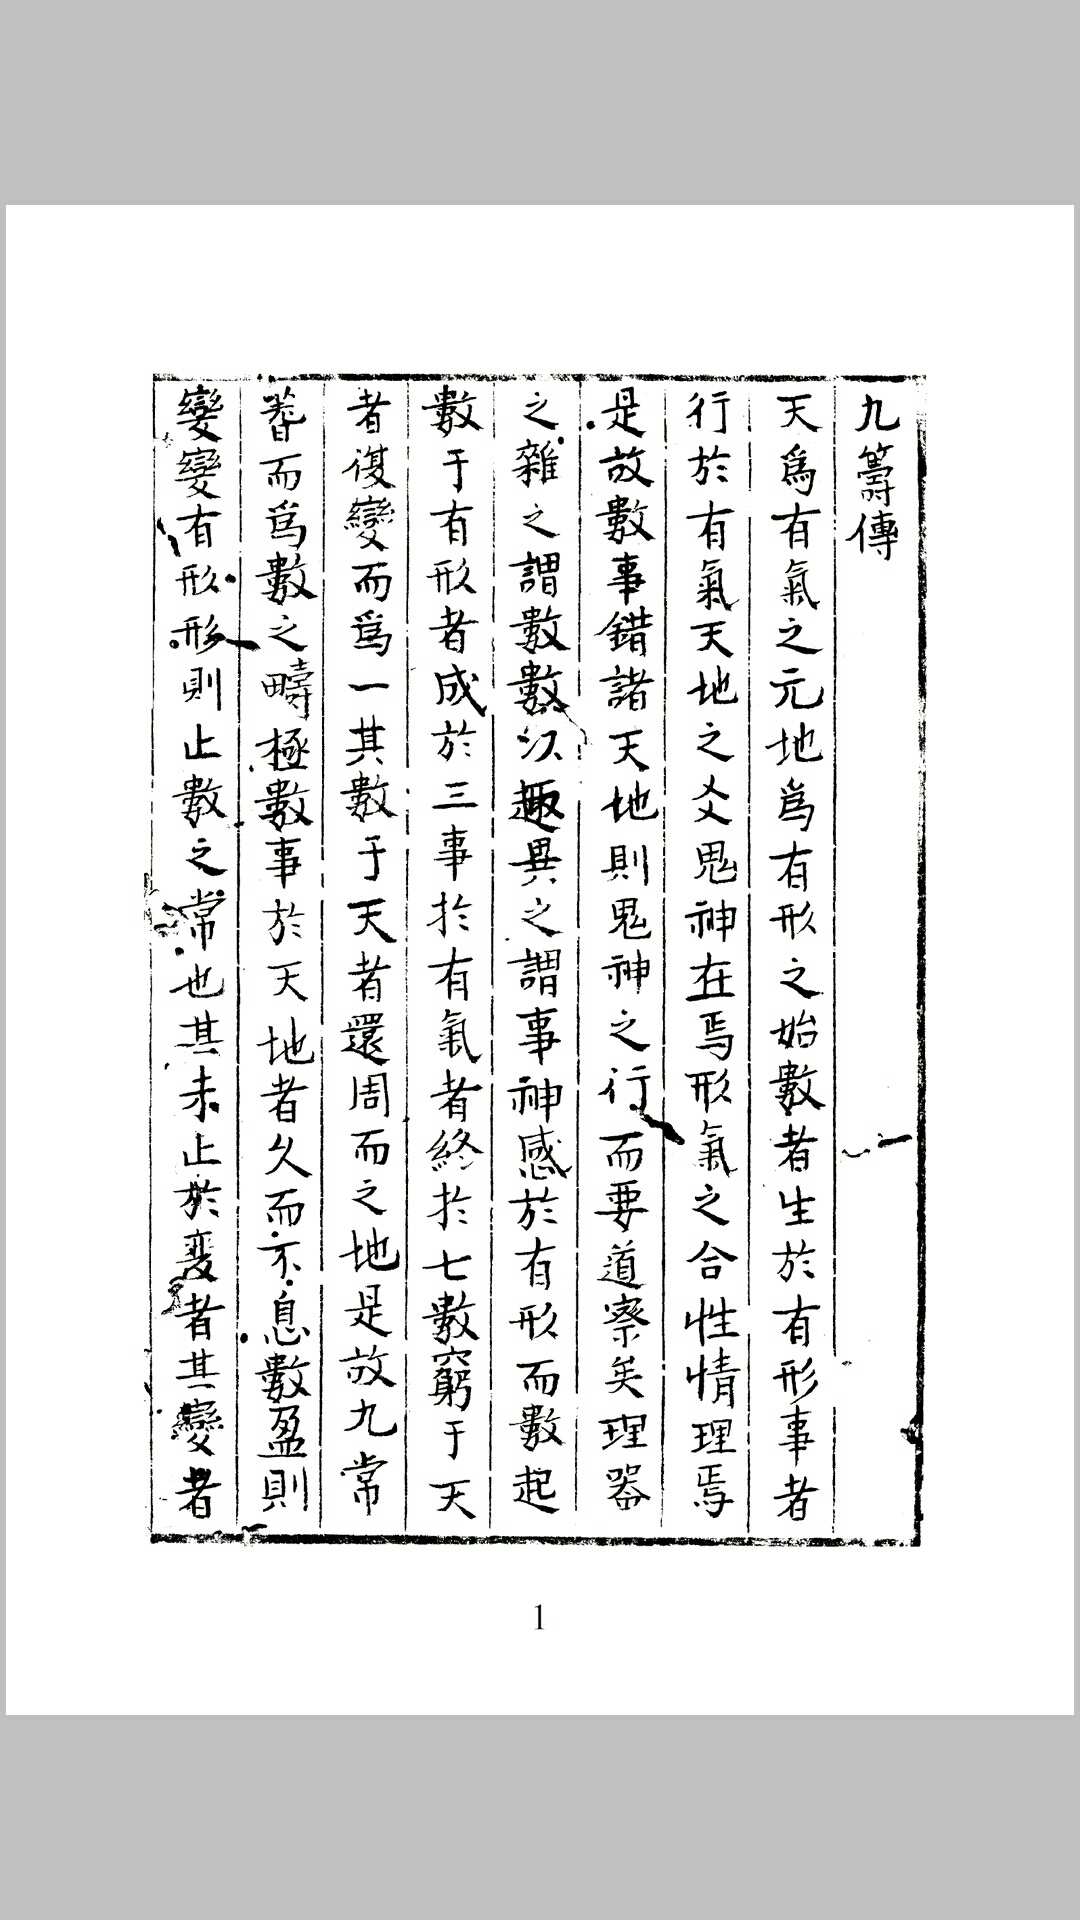 九籌傳
天爲有氣之元地爲有形之始數者生於有形事者
行於有氣天地之爻鬼神在焉形氣之合性情理焉
是故數事錯諸天地則鬼神之行而要道察矣理器
之雜之謂數數以趣異之謂事神感於有形而數起
數于有形者成於三事於有氣者終於七數窮于天
者復變而爲一其數于天者還周而之地是故九常
而爲數之疇極數事於天地者久而不息數盈則
變變有形形則止數之常也其未止於變者其變者
1